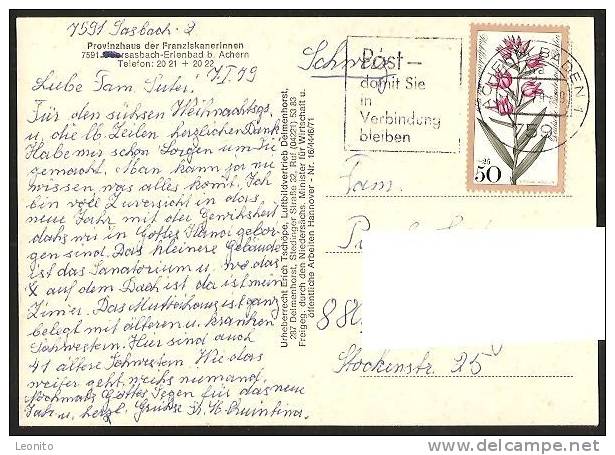 7591 Sasbach 2
Provinzhaus der Franziskanerinnen
7591 Obersasbach-Erlenbad b. Achern
Telefon: 20 21 + 20 22
7.I.79
Liebe Fam Suter.
Für den süssen Weihnachtsgr.
u. die lb. Zeilen herzlichen Dank
Habe mir schon Sorgen um Sie
gemacht. Man kann ja nie
wissen was alles kommt. Ich
bin voll Zuversicht in das
neue Jahr mit der Gewissheit
dass wir in Gottes Hand gebor-
gen sind. Das kleinere Gebäude
ist das Sanatorium u. wo das
X auf dem Dach ist da ist mein
Zimer. Das Mutterhaus ist ganz
belegt mit älteren u. kranken
Schwestern. Hier sind auch
41 ältere Schwestern Wie das
weiter geht weiss niemand.
Nochmals Gottes Segen für das neue
Jahr u. herzl. Grüsse Sr. M. Quintina.
Urheberrecht Erich Tschöpe, Luftbildvertrieb Delmenhorst,
287 Delmenhorst, Stedinger Straße 32, Ruf (04221) 53 83
Freigeg. durch den Niedersächs. Minister für Wirtschaft u.
öffentliche Arbeiten Hannover - Nr. 16/4446/71
Schweiz
Post —
damit Sie
in
Verbindung
bleiben
ACHERN, BADEN 1
7590
50
+25
Fam.
P
880
Stockenstr. 25
Leonito
www.delcampe.net